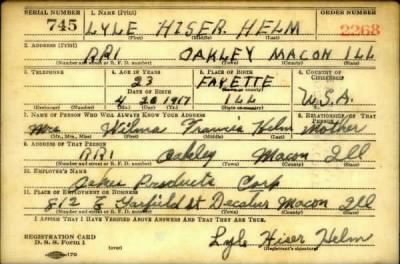 SERIAL NUMBER 1. NAME (Print) ORDER NUMBER
745 LYLE HISER HELM 2268
(First) (Middle) (Last)
2. ADDRESS (Print)
RR1 OAKLEY MACON ILL
(Number and street or R. F. D. number) (Town) (County) (State)
3. TELEPHONE 4. AGE IN YEARS 5. PLACE OF BIRTH 6. COUNTRY OF CITIZENSHIP
23 FAYETTE
DATE OF BIRTH
4 20 1917 ILL U.S.A.
(Exchange) (Number) (Mo.) (Day) (Yr.) (State or country)
7. NAME OF PERSON WHO WILL ALWAYS KNOW YOUR ADDRESS 8. RELATIONSHIP OF THAT PERSON
Mrs Wilma Francis Helm Mother
(Mr., Mrs., Miss) (First) (Middle) (Last)
9. ADDRESS OF THAT PERSON
RR1 Oakley Macon Ill
(Number and street or R. F. D. number) (Town) (County) (State)
10. EMPLOYER'S NAME
Products Corp
11. PLACE OF EMPLOYMENT OR BUSINESS
812 E Garfield St Decatur Macon Ill
(Number and street or R. F. D. number) (Town) (County) (State)
I AFFIRM THAT I HAVE VERIFIED ABOVE ANSWERS AND THAT THEY ARE TRUE.
REGISTRATION CARD
D. S. S. Form 1 (over) Lyle Hiser Helm
(Registrant's signature)